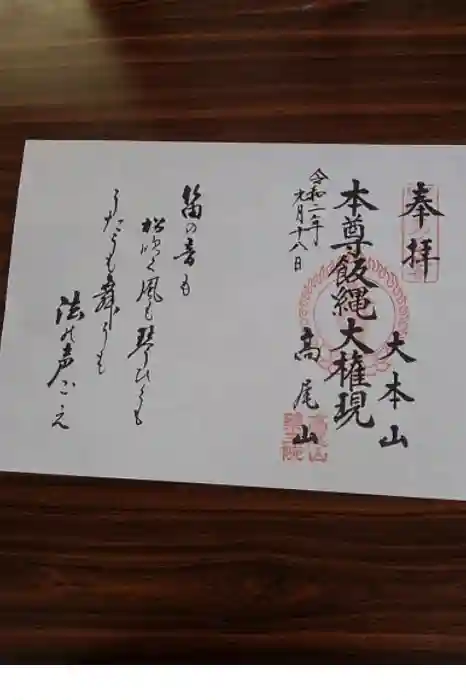 奉拝
大本山
本尊飯縄大権現
高尾山
高尾山
薬王院
令和二年
九月十八日
笛の音も
松吹く風も琴ひくも
うたうも舞うも
法の声ごえ